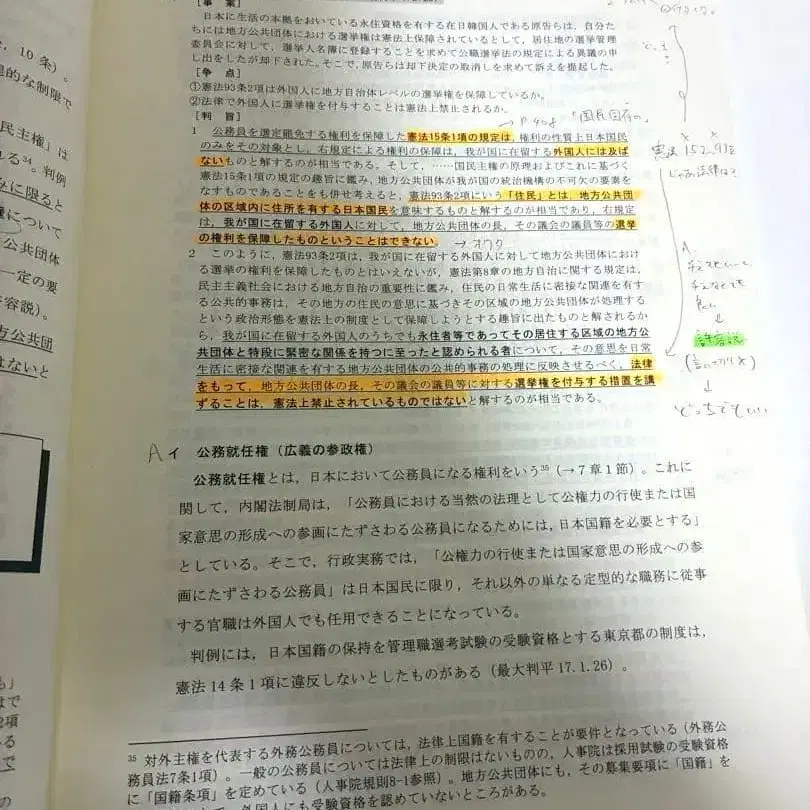 【事 案】
日本に生活の本拠をおいている永住資格を有する在日韓国人である原告らは，自分た
ちには地方公共団体における選挙権は憲法上保障されているとして，居住地の選挙管理
委員会に対して，選挙人名簿に登録することを求めて公職選挙法の規定による異議の申
し出をしたが却下された。そこで，原告らは却下決定の取消しを求めて訴えを提起した。
【争 点】
①憲法93条2項は外国人に地方自治体レベルの選挙権を保障しているか。
②法律で外国人に選挙権を付与することは憲法上禁止されるか。
【判 旨】
1 公務員を選定罷免する権利を保障した憲法15条1項の規定は，権利の性質上日本国民
のみをその対象とし，右規定による権利の保障は，我が国に在留する外国人には及ば
ないものと解するのが相当である。そして，……国民主権の原理およびこれに基づく
憲法15条1項の規定の趣旨に鑑み，地方公共団体が我が国の統治機構の不可欠の要素を
なすものであることをも併せ考えると，憲法93条2項にいう「住民」とは，地方公共団
体の区域内に住所を有する日本国民を意味するものと解するのが相当であり，右規定
は，我が国に在留する外国人に対して，地方公共団体の長，その議会の議員等の選挙
の権利を保障したものということはできない。
2 このように，憲法93条2項は，我が国に在留する外国人に対して地方公共団体におけ
る選挙の権利を保障したものとはいえないが，憲法第8章の地方自治に関する規定は，
民主主義社会における地方自治の重要性に鑑み，住民の日常生活に密接な関連を有す
る公共的事務は，その地方の住民の意思に基づきその区域の地方公共団体が処理する
という政治形態を憲法上の制度として保障しようとする趣旨に出たものと解されるか
ら，我が国に在留する外国人のうちでも永住者等であってその居住する区域の地方公
共団体と特段に緊密な関係を持つに至ったと認められる者について，その意思を日常
生活に密接な関連を有する地方公共団体の公共的事務の処理に反映させるべく，法律
をもって，地方公共団体の長，その議会の議員等に対する選挙権を付与する措置を講
ずることは，憲法上禁止されているものではないと解するのが相当である。
A
イ 公務就任権（広義の参政権）
公務就任権とは，日本において公務員になる権利をいう35（→7章1節）。これに
関して，内閣法制局は，「公務員における当然の法理として公権力の行使または国
家意思の形成への参画にたずさわる公務員になるためには，日本国籍を必要とする」
としている。そこで，行政実務では，「公権力の行使または国家意思の形成への参
画にたずさわる公務員」は日本国民に限り，それ以外の単なる定型的な職務に従事
する官職は外国人でも任用できることになっている。
判例には，日本国籍の保持を管理職選考試験の受験資格とする東京都の制度は，
憲法14条1項に違反しないとしたものがある（最大判平17.1.26）。
35 対外主権を代表する外務公務員については，法律上国籍を有することが要件となっている（外務公
務員法7条1項）。一般の公務員については法律上の制限はないものの，人事院は採用試験の受験資格
に「国籍条項」を定めている（人事院規則8-1参照）。地方公共団体にも，その募集要項に「国籍」を
外国人にも受験資格を認めていないところがある。
10条）。
的な制限で
民主権」は
る34。判例
に限ると
について
公共団体
一定の要
容説）。
方公共団
はないと
許容説
どっちでもいい